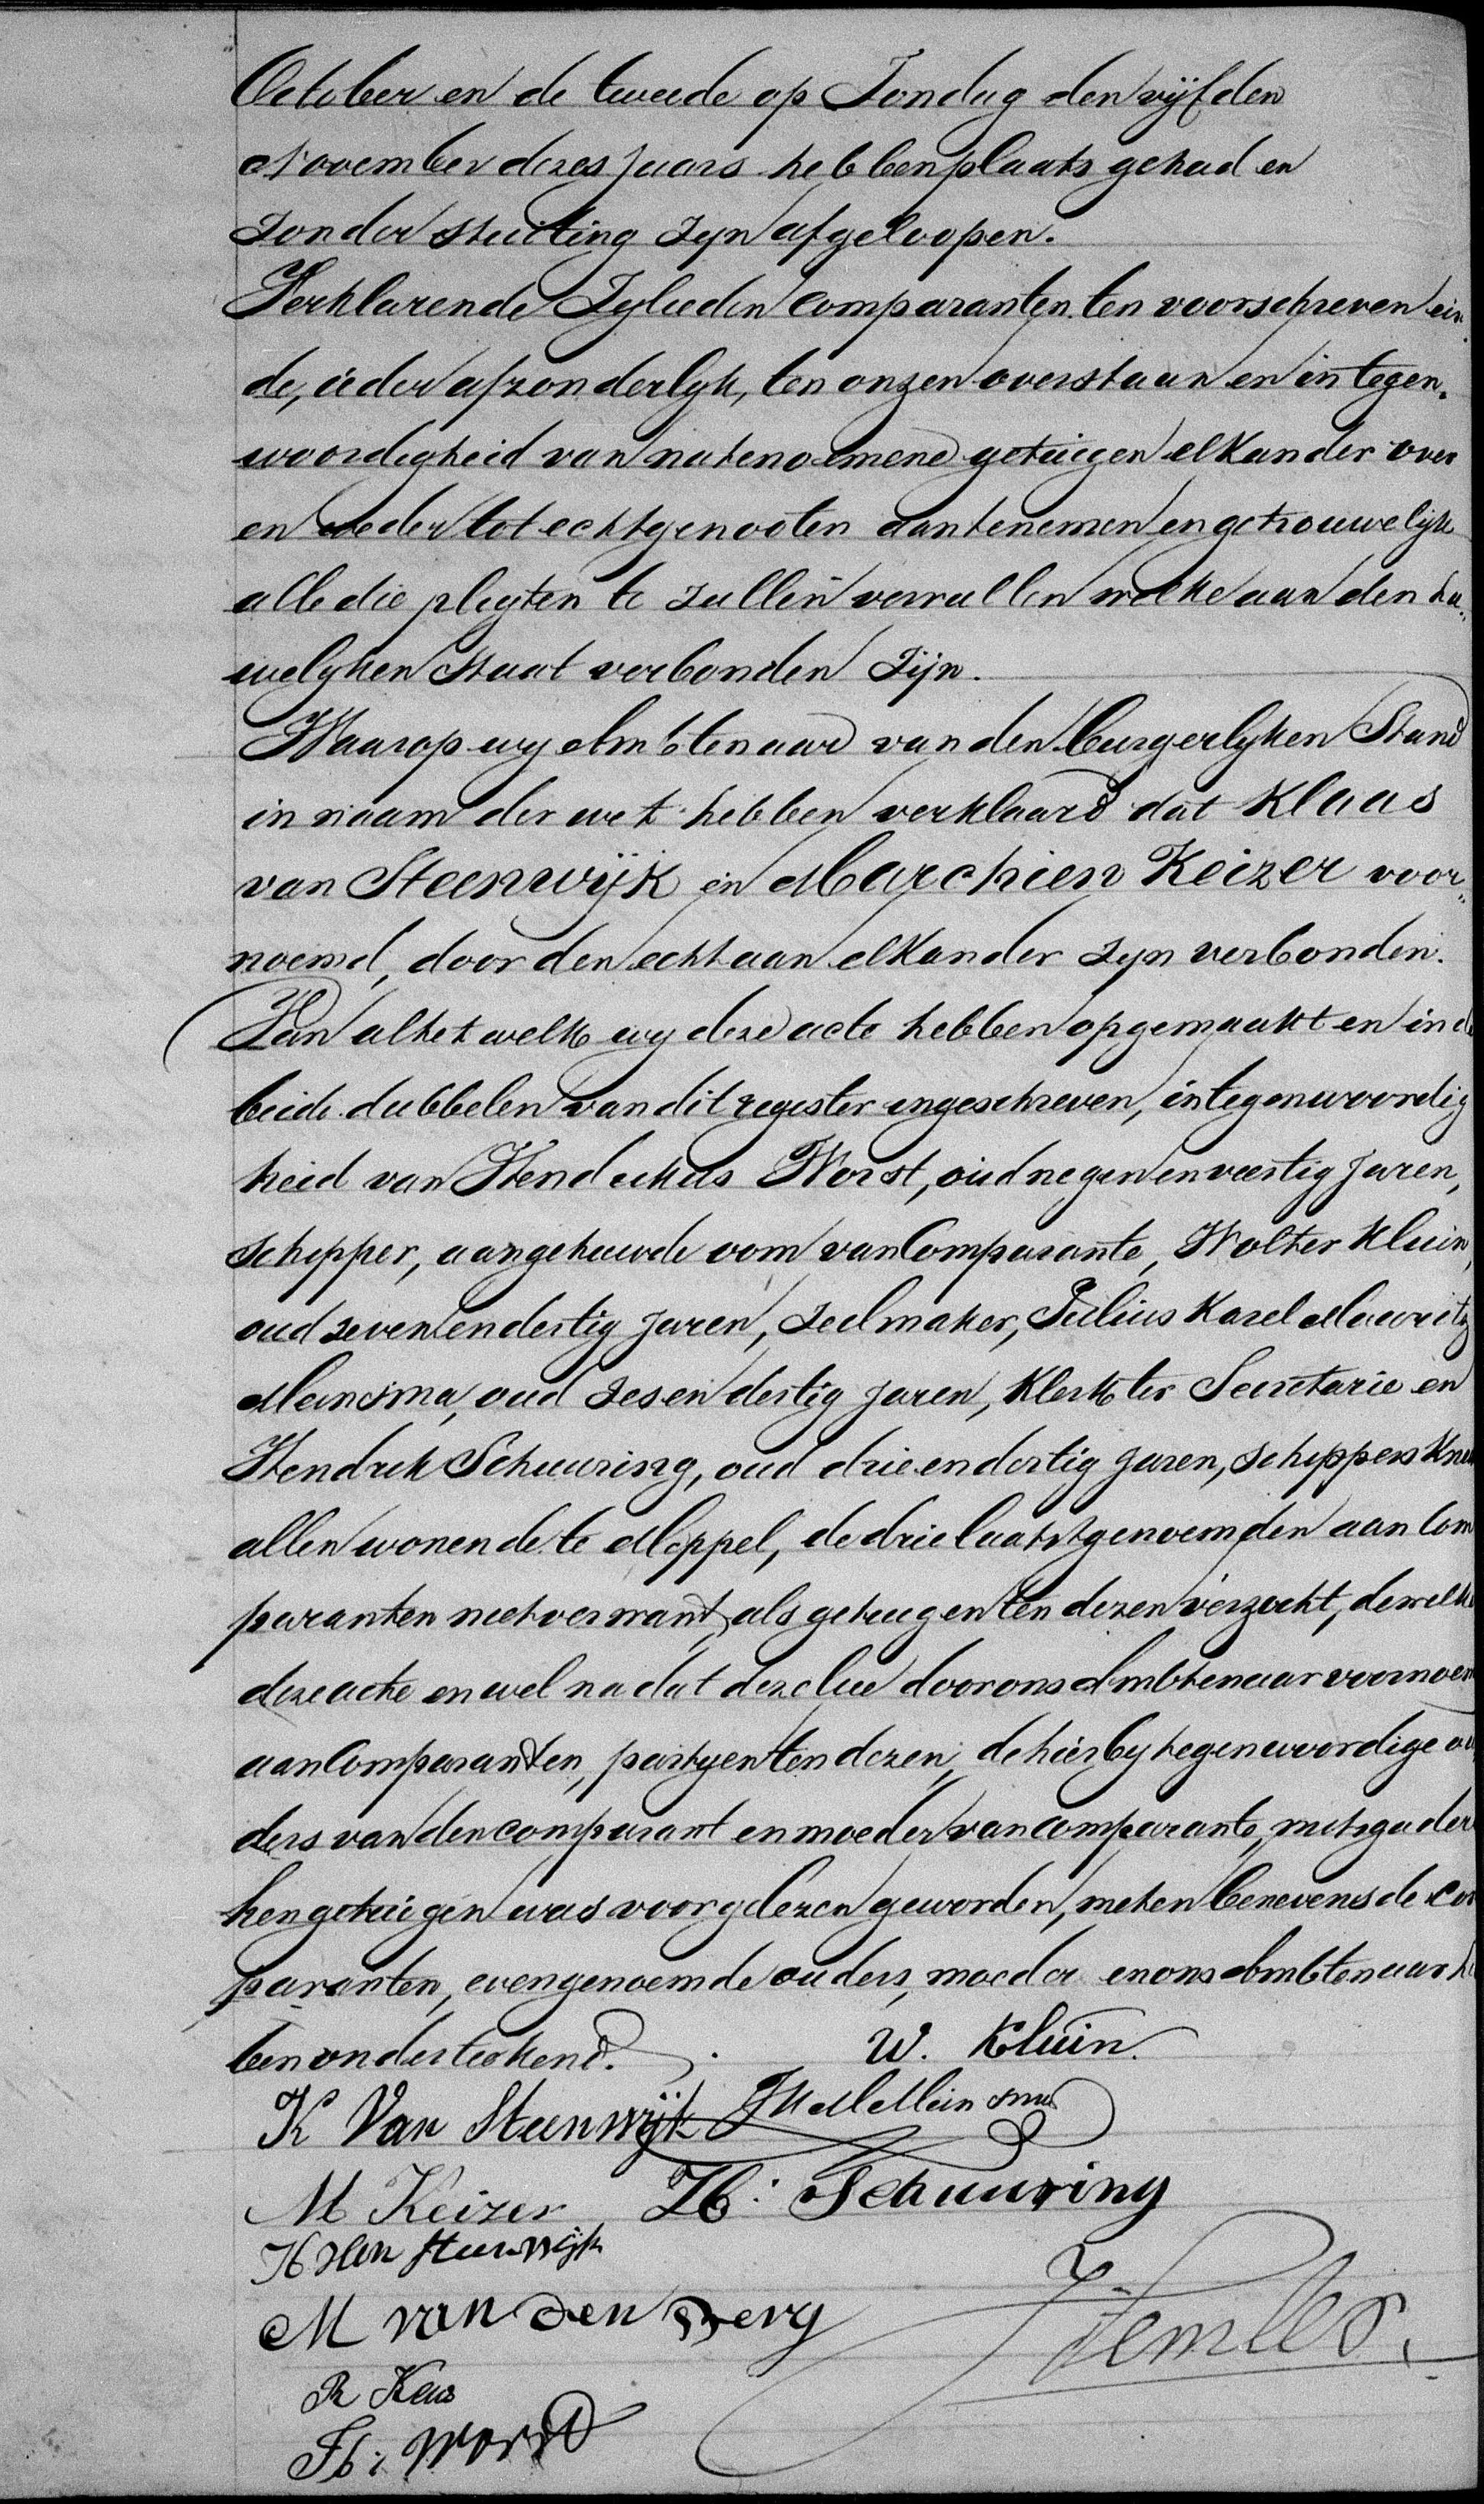 October en de tweede op Zondag den vijfden
November dezes jaars hebben plaats gehad en
zonder stuiting zyn afgeloopen.
Verklarende Zylieden Comparanten ten voorschreven ein
de, ieder afzonderlyk, ten onzen overstaan en in tegen.
woordigheid van natenoemene getuigen elkander over
en weder tot echtgenooten aantenemen en getrouwelyk
alle die plegten te zullen vervullen welke aan den hu„
welyken Staat verbonden Zijn.
Waarop wy Ambtenaar van den Burgerlyken Stand
in naam der wet hebben verklaard dat Klaas
van Steenwijk en Marchien Keizer voor„
noemd, door den echt aan elkander zyn verbonden.
Van al het welk wy deze acte hebben opgemaakt en in de
beide dubbelen van dit register ingeschreven, in tegenwoordig
heid van Hendrikus Worst, oud negen en veertig Jaren,
Schipper, aangehuwde oom van Comparante, Wolter Kluin,
oud zeven en dertig Jaren, Zeelmaker, Julius Karel Mauritz
Meinsma, oud zes en dertig Jaren, Klerk ter Secretarie en
Hendrik Schuuring, oud drie en dertig Jaren, Schippers kne
allen wonende te Meppel, de drie laatstgenoemden aan Com
paranten niet vermant, als getuigen ten dezen verzocht, dewelke
deze acte en wel na dat dezelve door ons Ambtenaar voornoem
aan Comparanten, partyen ten dezen, de hierby tegenwoordige ou
ders van den comparant en moeder van comparante, mitsgader
hen getuigen was voorgelezen geworden, met en benevens de com
paranten, evengenoemde ouders, moeder en ons Ambtenaar he
ben onderteekend.
W. Kluin.
K Van Steenwijk JKMMeinsma
M Keizer H: Schuuring
H van Steenwijk
M van den Berg
R Keus
H: Worst